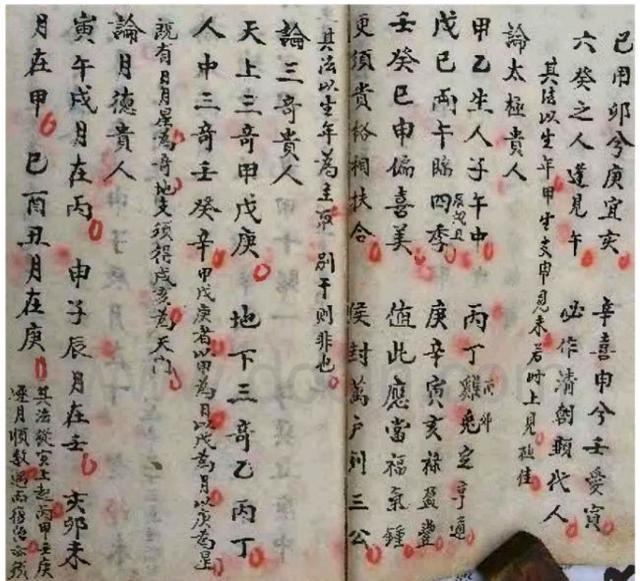 己用卯兮庚宜亥 辛喜申兮壬愛寅
六癸之人逢見午 必作清朝顯代人
其法以生年甲生支申見未若時上見極佳
論太極貴人
甲乙生人子午中 丙丁雞兔定亨通
戊己兩午臨四季 庚辛寅亥祿盈豐
壬癸巳申偏喜美 值此應當福氣鍾
更須貴格相扶合 侯封萬户列三公
其法以生年為主 別干則非也
論三奇貴人
天上三奇甲戊庚 地下三奇乙丙丁
人中三奇壬癸辛 甲戊庚者以甲為日以戊為月以庚為星
既有日月星為奇地支須得戌亥為天門
論月德貴人
寅午戌月在丙 申子辰月在壬 亥卯未
月在甲 巳酉丑月在庚 其法從寅上起丙甲壬庚
逐月順數週而復始